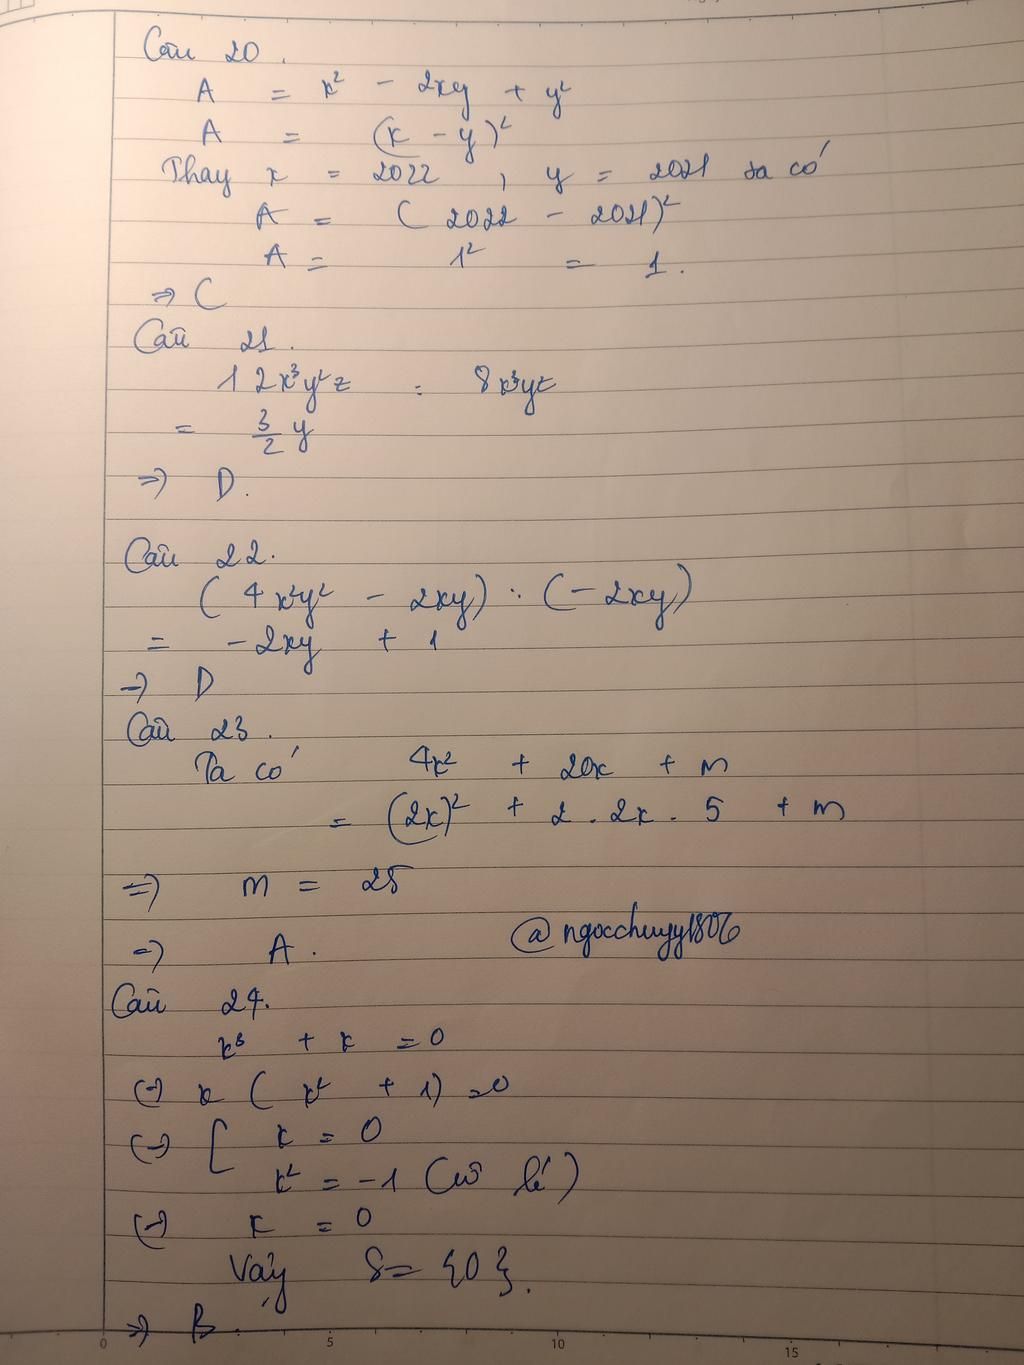 Câu 20.
A = x² - 2xy + y²
A = (x - y)²
Thay x = 2022, y = 2021 ta có
A = (2022 - 2021)²
A = 1² = 1.
⇒ C
Câu 21.
12x³y²z : 8x³yz
= 3/2 y
⇒ D.
Câu 22.
(4x²y² - 2xy) : (-2xy)
= -2xy + 1
⇒ D
Câu 23.
Ta có 4x² + 20x + m
= (2x)² + 2 . 2x . 5 + m
⇒ m = 25
⇒ A.
@ngocchuyy1806
Câu 24.
x³ + x = 0
⇔ x (x² + 1) = 0
⇔ [ x = 0
x² = -1 (vô lí)
⇔ x = 0
Vậy S = {0}.
⇒ B.
0 5 10 15